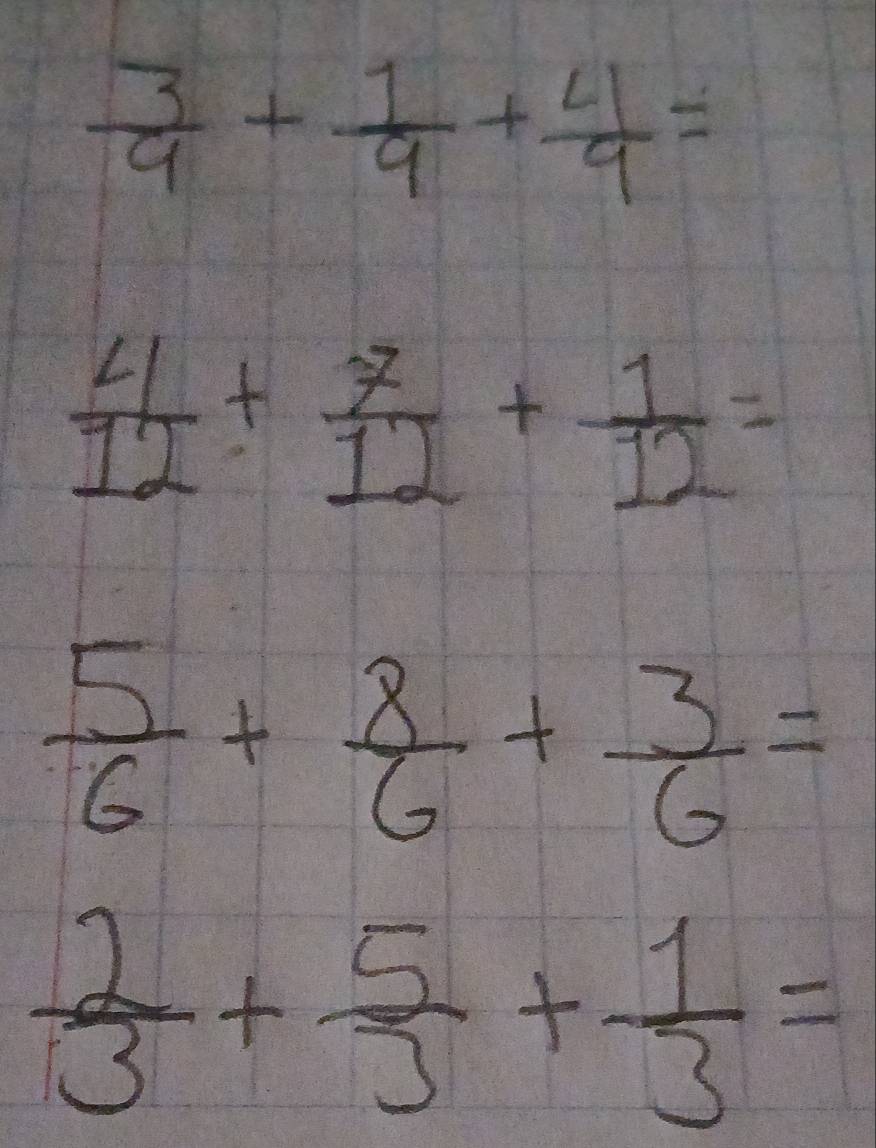 3/9 + 1/9 + 4/9 =
4/12 + 7/12 + 1/12 =
5/6 + 8/6 + 3/6 =
2/3 + 5/3 + 1/3 =